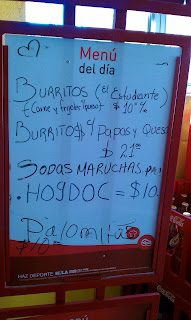 Menú
del día
BURRITOS (El Estudiante)
(Carne y frijoles y queso) $10.00
BURRITOS $4 Papas y Queso
$ 21.00
SODAS MARUCHAS
HOGDOC = $10
Palomitas
$10.00
HAZ DEPORTE